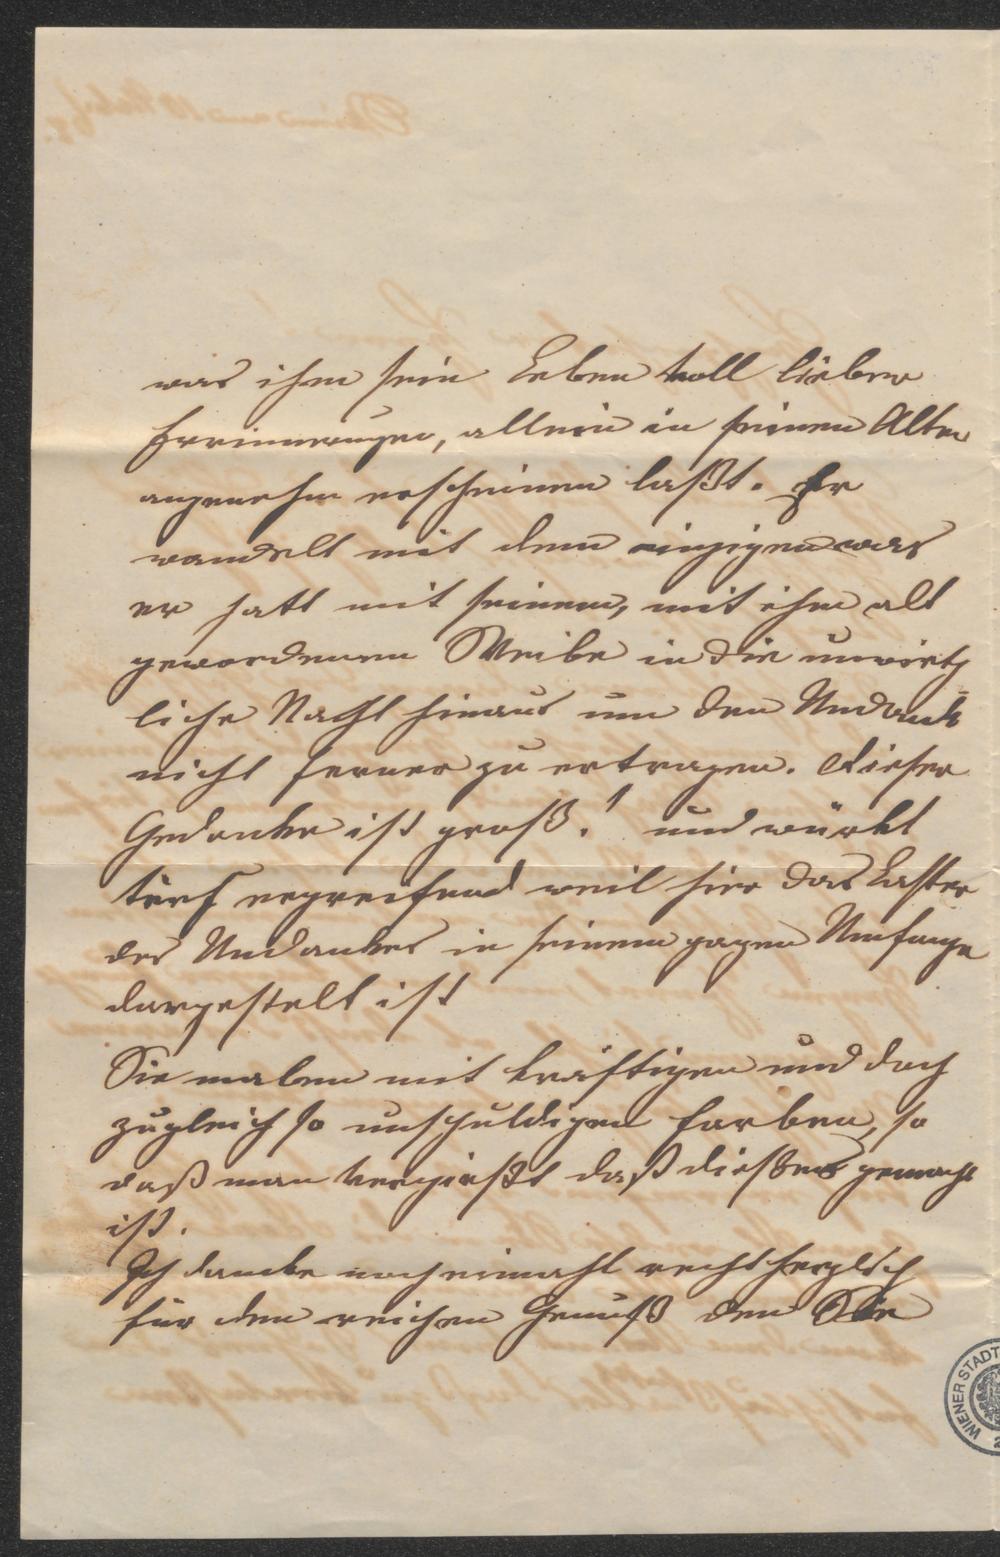 was ihm sein Leben voll lieber
Errinnerungen, allein in seinem Alter
angenehm erscheinen laßt. Er
wandelt mit dem einzigen was
er hatt mit seinem, mit ihm alt
gewordenen Weibe in die unwirth
liche Nacht hinaus um den Undank
nicht ferner zu ertragen. Dieser
Gedanke ist groß! und würkt
tief ergreifend weil hier das Laster
des Undankes in seinem gazen Umfange
dargestelt ist
Sie malen mit kräftigen und doch
zugleich so unschuldigen Farben, so
daß man vergießt daß dießes gemacht
ist.
Ich danke nocheinmahl recht herzlich
für den reichen Genuß den Sie
WIENER STADT